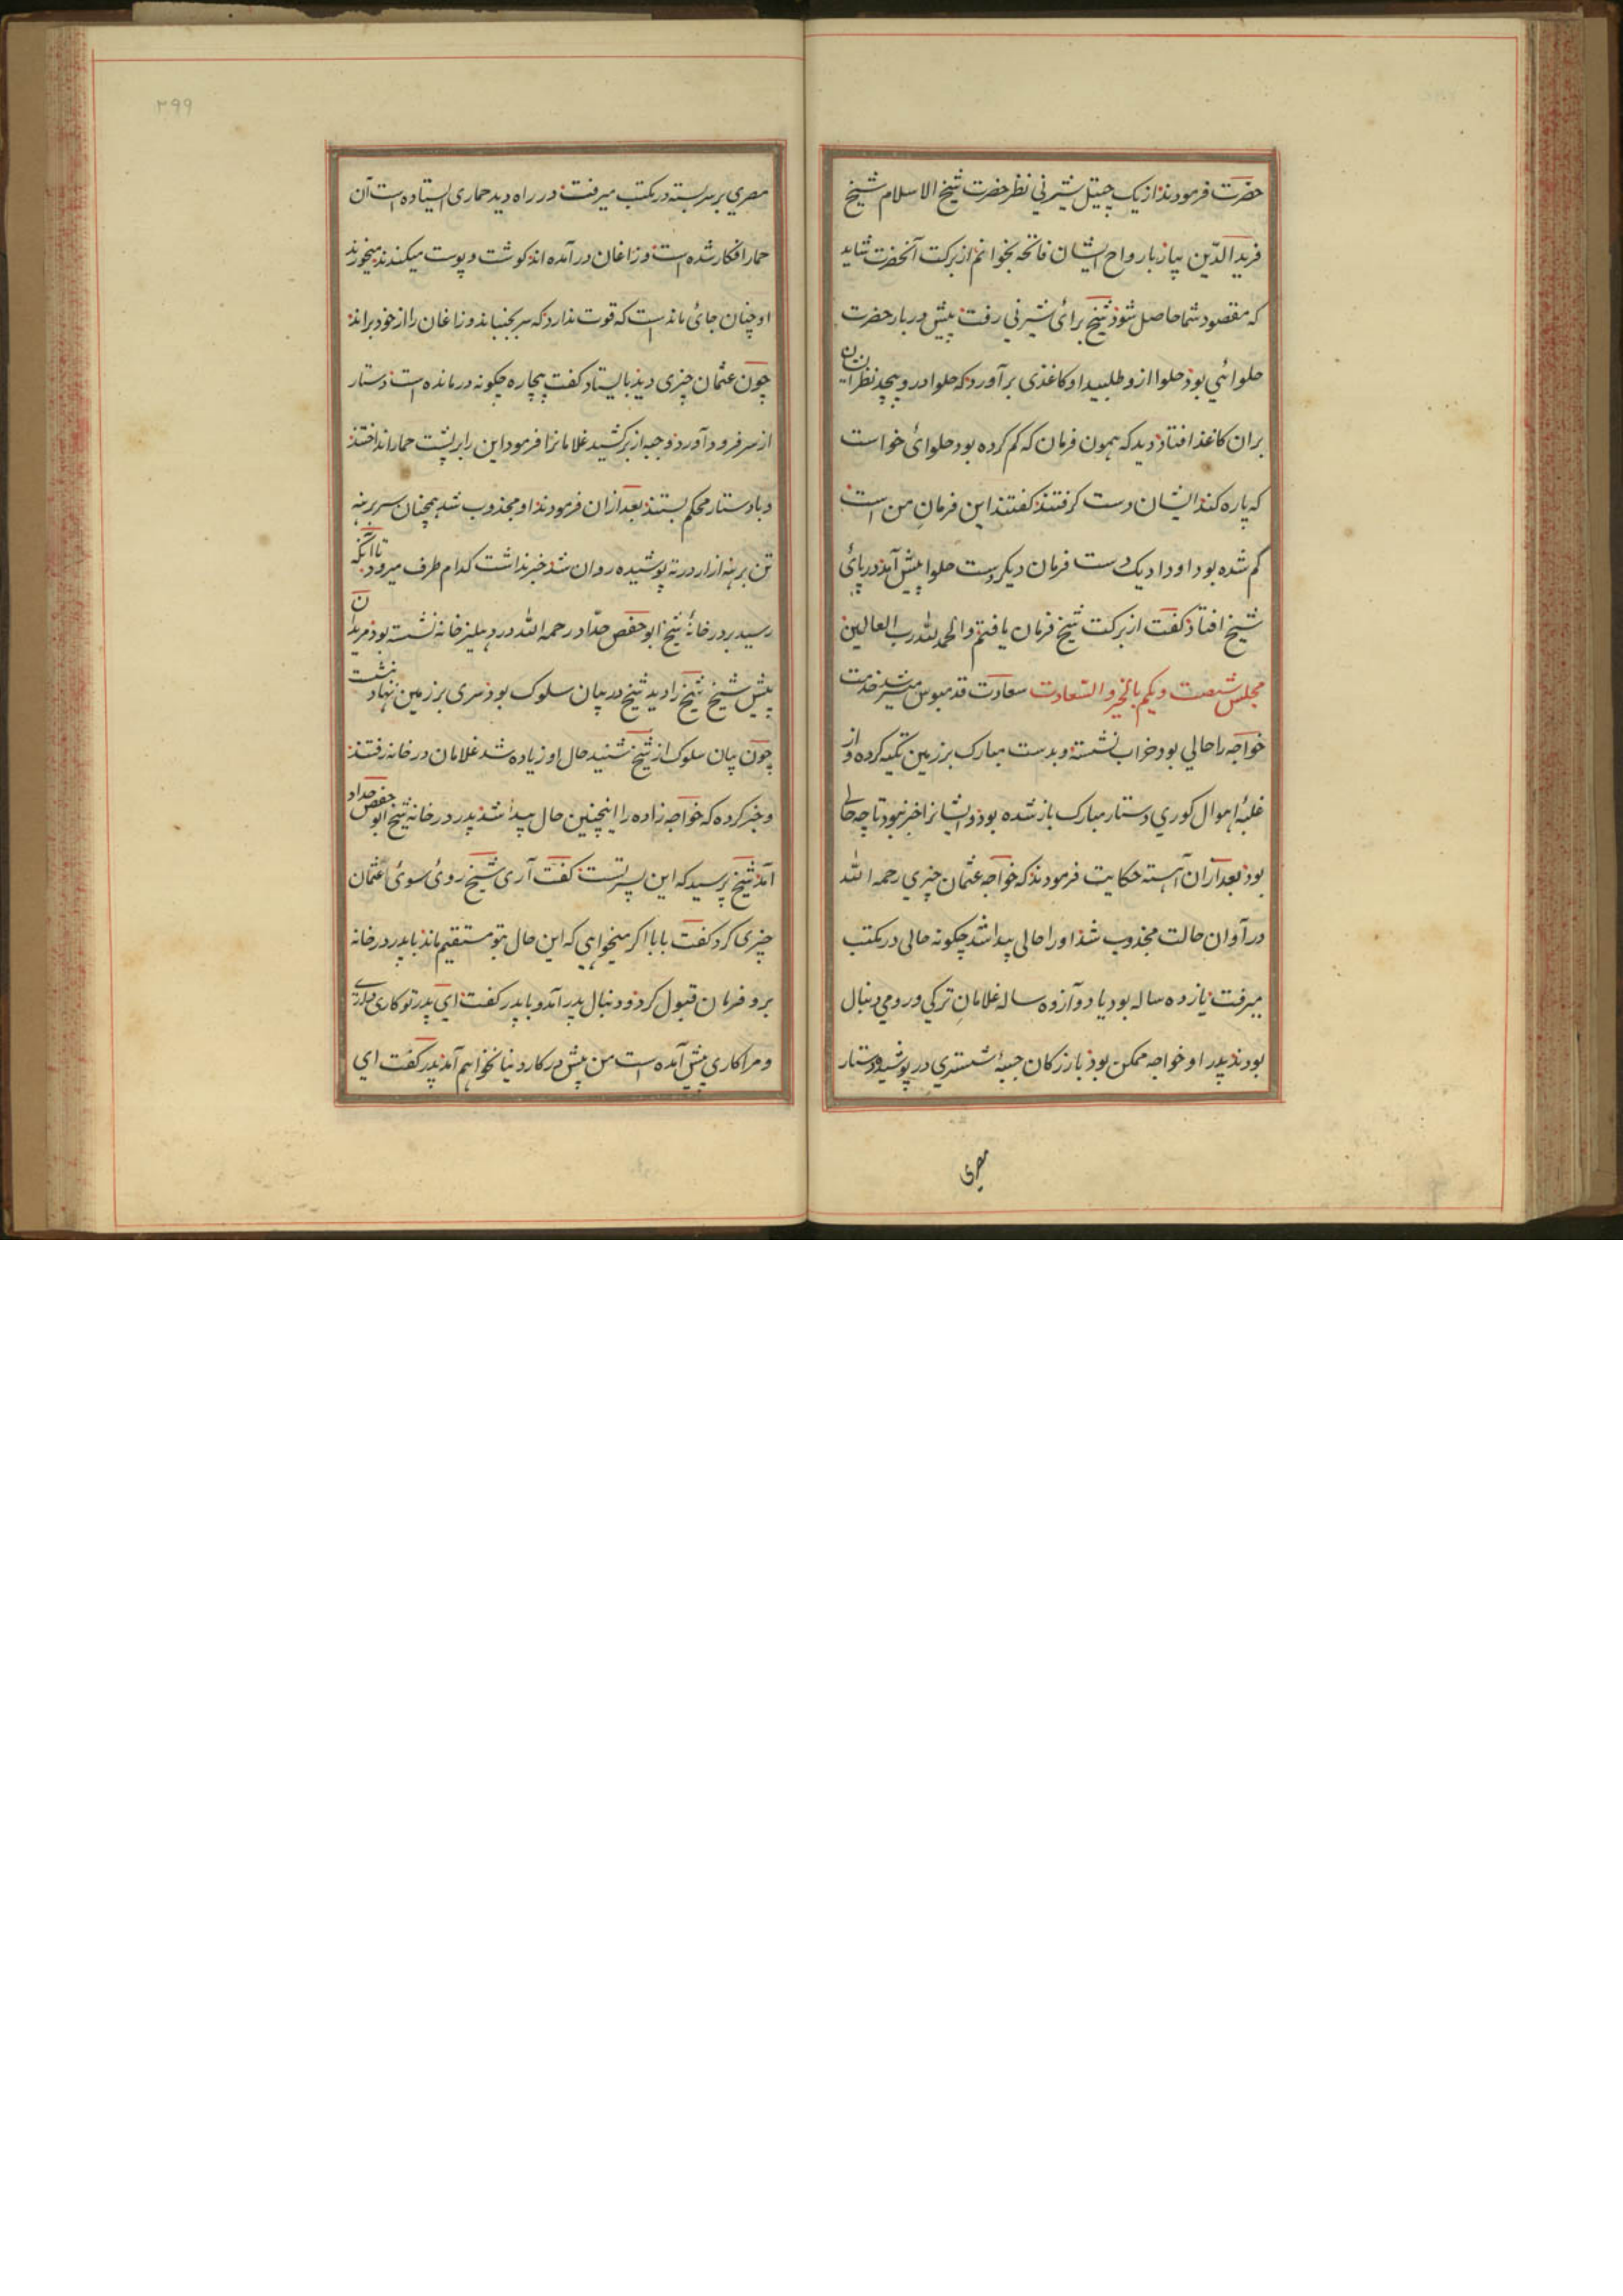 حضرت فرمودند از یک چیتل شیرنی نظر حضرت شیخ الاسلام شیخ
فرید الدّین بیاز بار واح ایشان فاتحه بخوانم از برکت آنحضرت شاید
که مقصود شما حاصل شود شیخ برای شیرنی رفت پیش دربار حضرت
حلوائی بود حلوا ازو طلبید او کاغذی برآورد که حلوا درو بپیچد نظر ایشان
بران کاغذ افتاد دید که همون فرمان که کم کرده بود حلوائی خواست
که پاره کند ایشان دست کرفتند کفتند این فرمانِ من است
کم شده بود او داد یک دست فرمان دیکر دست حلوا پیش آمد در پای
شیخ افتاد کفت از برکت شیخ فرمان یافتم والحمد لله رب العالمین
مجلس شصت و یکم بالخیر و السّعادت سعادت قدمبوس میسر شد خدمت
خواجه را حالی بود خراب نشسته و بدست مبارک بر زمین تکیه کرده و از
غلبۀ اهوال کوری دستار مبارک باز شده بود و ایشانرا خبر نبود تا چه حالی
بود بعد ازان آهسته حکایت فرمودند که خواجه عثمان چیری رحمه الله
در آوان حالت مجذوب شد او را حالی پیدا شد چکونه حالی در مکتب
میرفت یازده ساله بود یا دوازده ساله غلامانِ ترکی و رومی دنبال
بودند پدر او خواجه ممکن بود بازرکان جبۀ ششتری در پوشیده و دستار
مصری
۳۹۹
مصری بر سر بسته در مکتب میرفت در راه دید حماری ایستاده است آن
حمار افکار شده است و زاغان در آمده اند کوشت و پوست میکنند میخورند
او چنان جائ ماند است که قوت ندارد که سر بجنباند و زاغان را از خود براند
چون عثمان چیری دید بایستاد کفت بیچاره چکونه درمانده است دستار
از سر فرود آورد و جبه از بر کشید غلامانرا فرمود این را بر پشت حمار انداختند
و با دستار محکم بستند بعد ازان فرمودند او مجذوب شد همچنان سر برهنه
تن برهنه ازار در ته پوشیده روان شد خبر نداشت کدام طرف میرود تا آنکه
رسید بر در خانۀ شیخ ابو حفص حدّاد رحمه الله در دهلیز خانه نشسته بود مریدان
پیش شیخ شیخ را دید شیخ در بیان سلوک بود سری بر زمین نهاد نشست
چون بیان سلوک از شیخ شنید حال او زیاده شد غلامان در خانه رفتند
و خبر کرده که خواجه زاده را اینچنین حال پیدا شد پدر در خانه شیخ ابو حفص حداد
آمد شیخ پرسید که این پسر تست کفت آری شیخ روی سوی عثمان
چیری کرد کفت بابا اکر میخواهی که این حال بتو مستقیم ماند با پدر در خانه
برو فرمان قبول کرد و دنبال پدر آمد و با پدر کفت ای پدر تو کاری داری
و مرا کاری پیش آمده است من پیش در کار دنیا نخواهم آمد پدر کفت ای